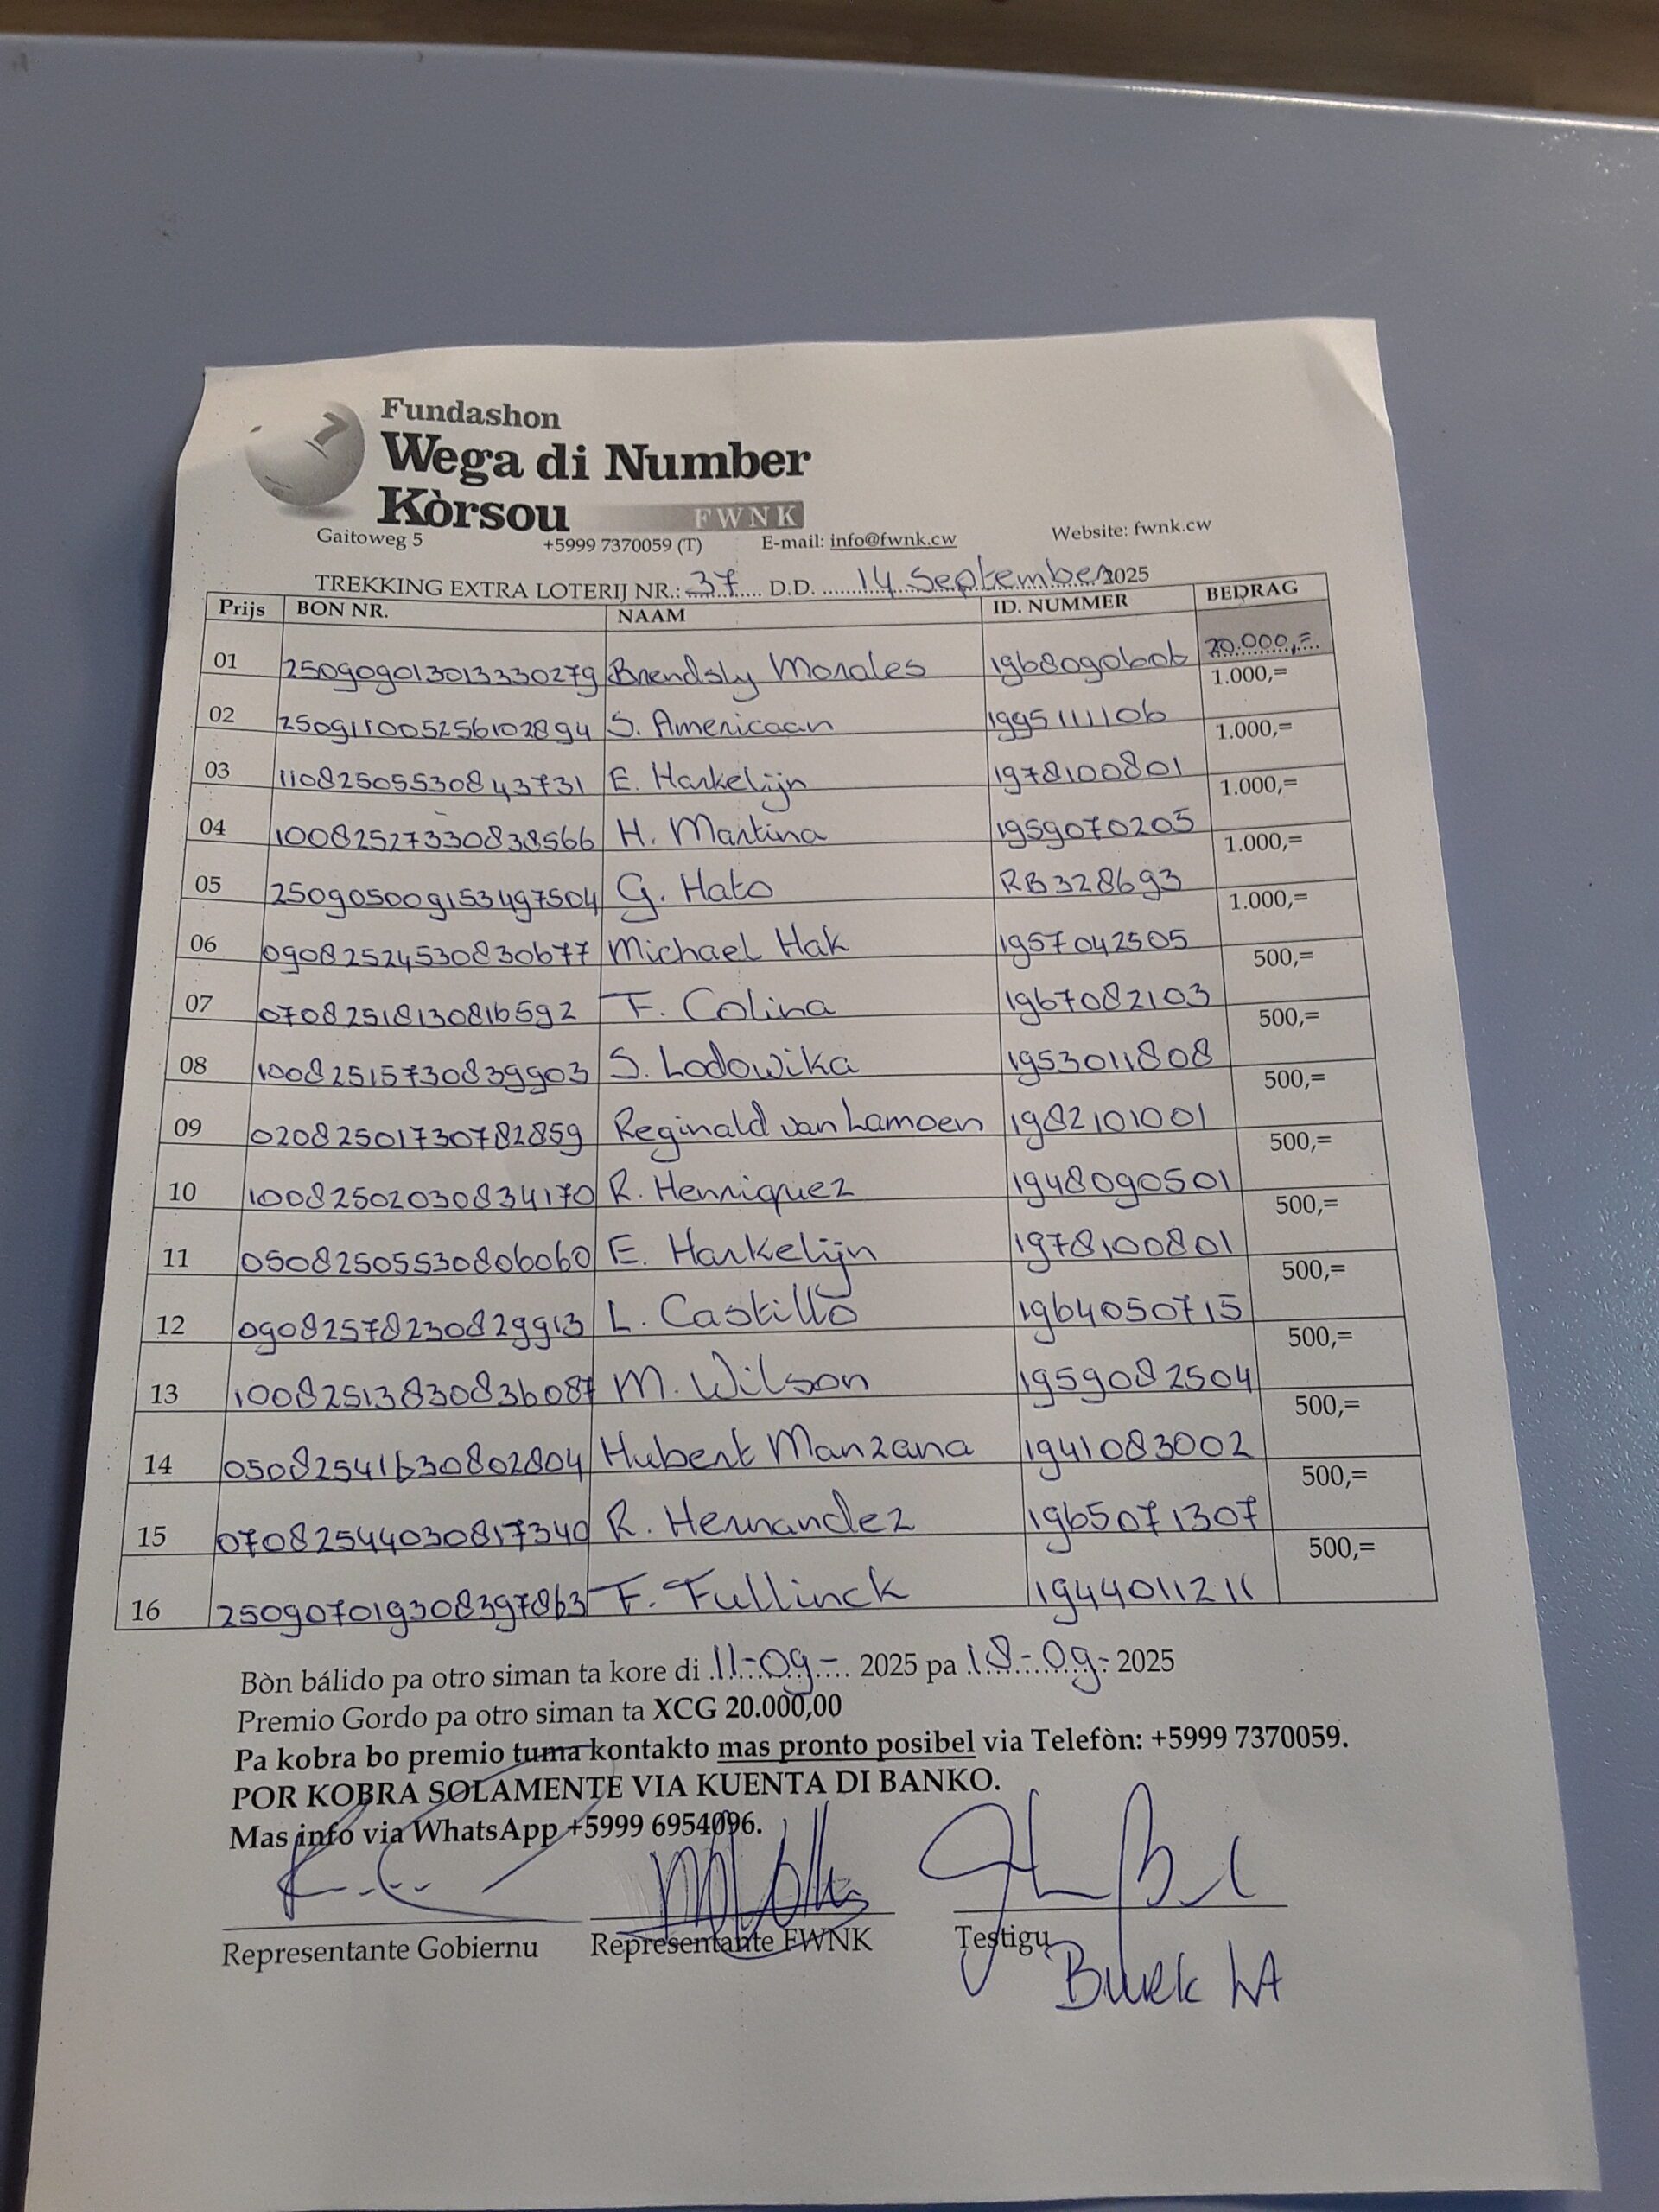 7
Fundashon
Wega di Number
Kòrsou FWNK
Gaitoweg 5 +5999 7370059 (T) E-mail: info@fwnk.cw Website: fwnk.cw
TREKKING EXTRA LOTERIJ NR.: 37 D.D. 14 September 2025
Prijs BON NR. NAAM ID. NUMMER BEDRAG
01 250909013013330279 Brendsly Morales 1968090606 20.000,=
02 250911005256102894 S. Americaan 1995111106 1.000,=
03 11082505530843731 E. Harkelijn 1978100801 1.000,=
04 10082527330838566 H. Martina 1959070205 1.000,=
05 250905009153497504 G. Hato RB328693 1.000,=
06 09082524530830677 Michael Hak 1957042505 1.000,=
07 07082518130816592 F. Colina 1967082103 500,=
08 10082515730839903 S. Lodowika 1953011808 500,=
09 02082501730782859 Reginald van Lamoen 1982101001 500,=
10 10082502030834170 R. Henriquez 1948090501 500,=
11 05082505530806060 E. Harkelijn 1978100801 500,=
12 09082578230829913 L. Castillo 1964050715 500,=
13 10082513830836087 M. Wilson 1959082504 500,=
14 05082541630802804 Hubert Manzana 1941083002 500,=
15 07082544030817340 R. Hernandez 1965071307 500,=
16 250907019308397863 F. Fullinck 1944011211 500,=
Bòn bálido pa otro siman ta kore di 11-09- 2025 pa 18-09- 2025
Premio Gordo pa otro siman ta XCG 20.000,00
Pa kobra bo premio tuma kontakto mas pronto posibel via Telefòn: +5999 7370059.
POR KOBRA SOLAMENTE VIA KUENTA DI BANKO.
Mas info via WhatsApp +5999 6954096.
Representante Gobiernu Representante FWNK Testigu